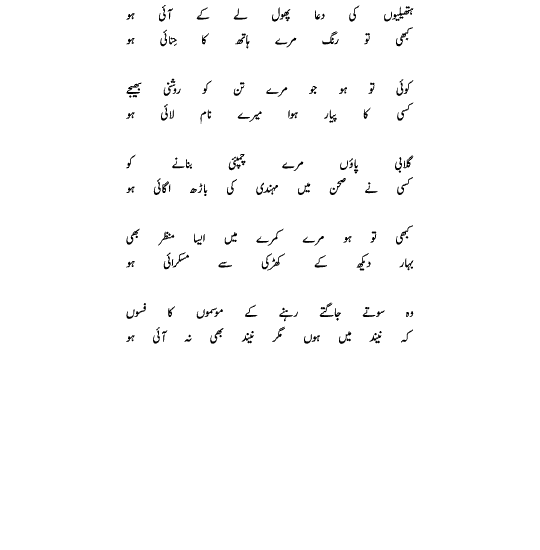 ہتھیلیوں کی دعا پھول لے کے آئی ہو
کبھی تو رنگ مرے ہاتھ کا حِنائی ہو
کوئی تو ہو جو مرے تن کو روشنی بھیجے
کسی کا پیار ہوا میرے نام لائی ہو
گلابی پاؤں مرے چمپئی بنانے کو
کسی نے صحن میں مہندی کی باڑھ اگائی ہو
کبھی تو ہو مرے کمرے میں ایسا منظر بھی
بہار دیکھ کے کھڑکی سے مسکرائی ہو
وہ سوتے جاگتے رہنے کے موسموں کا فسوں
کہ نیند میں ہوں مگر نیند بھی نہ آئی ہو